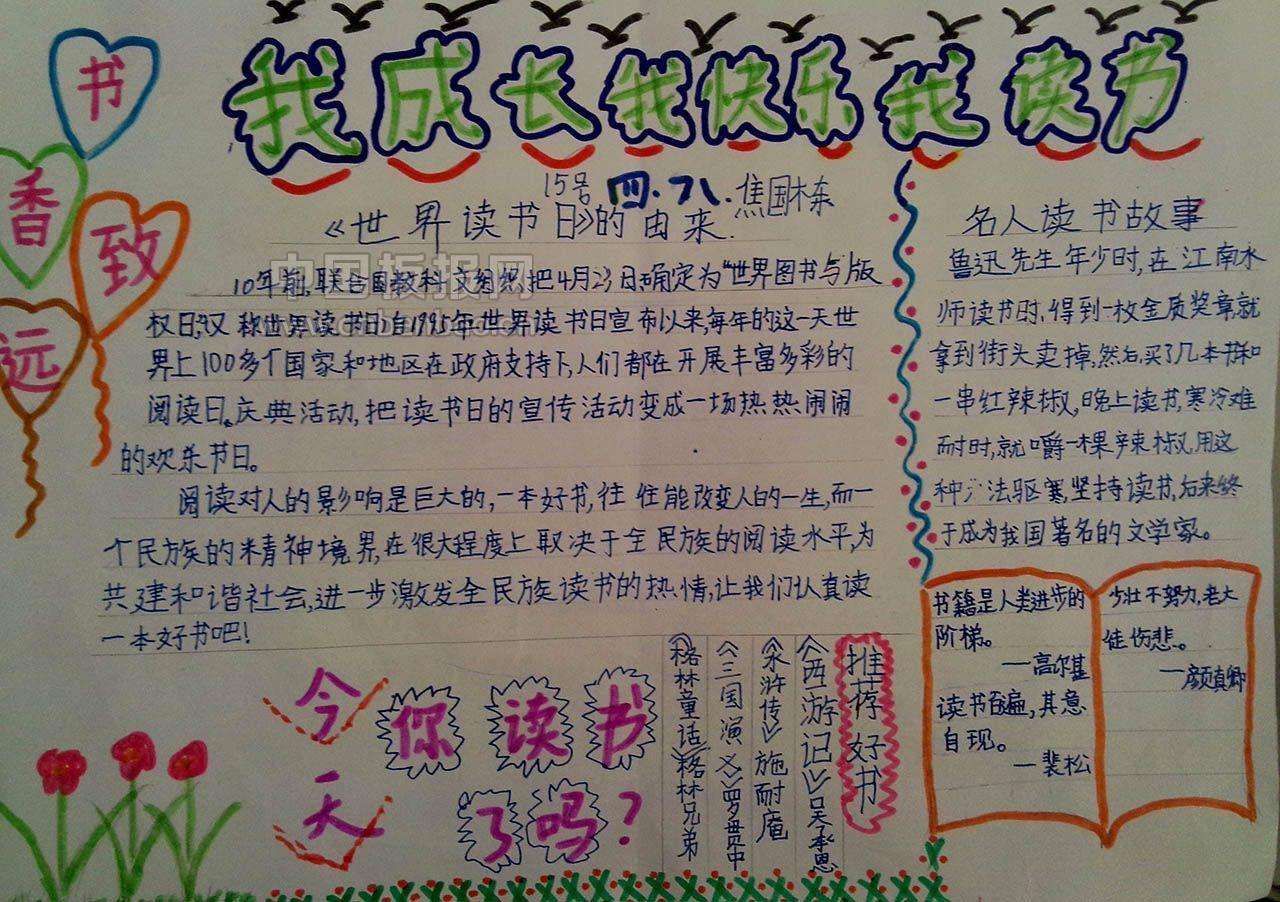 书
香
致
远
我成长我快乐我读书
15号 四·八.焦国栋
《世界读书日》的由来.
10年前,联合国教科文组织把4月23日确定为“世界图书与版
权日,又称世界读书日,自1995年世界读书日宣布以来,每年的这一天世
界上100多个国家和地区在政府支持下,人们都在开展丰富多彩的
阅读日。庆典活动,把读书日的宣传活动变成一场热热闹闹
的欢乐节日。
阅读对人的影响是巨大的,一本好书,往住能改变人的一生,而一
个民族的精神境界,在很大程度上取决于全民族的阅读水平,为
共建和谐社会,进一步激发全民族读书的热情,让我们认真读
一本好书吧!
名人读书故事
鲁迅先生年少时,在江南水
师读书时,得到一枚金质奖章就
拿到街头卖掉,然后,买了几本书和
一串红辣椒,晚上读书,寒冷难
耐时,就嚼一棵辣椒,用这
种方法驱寒,坚持读书,后来终
于成为我国著名的文学家。
书籍是人类进步的
阶梯。
—高尔基
读书百遍,其意
自现。
—裴松
少壮不努力,老大
徒伤悲。
—颜真卿
推荐好书
《西游记》吴承恩
《水浒传》施耐庵
《三国演义》罗贯中
《格林童话》格林兄弟
今天
你读书
了吗?
中国板报网